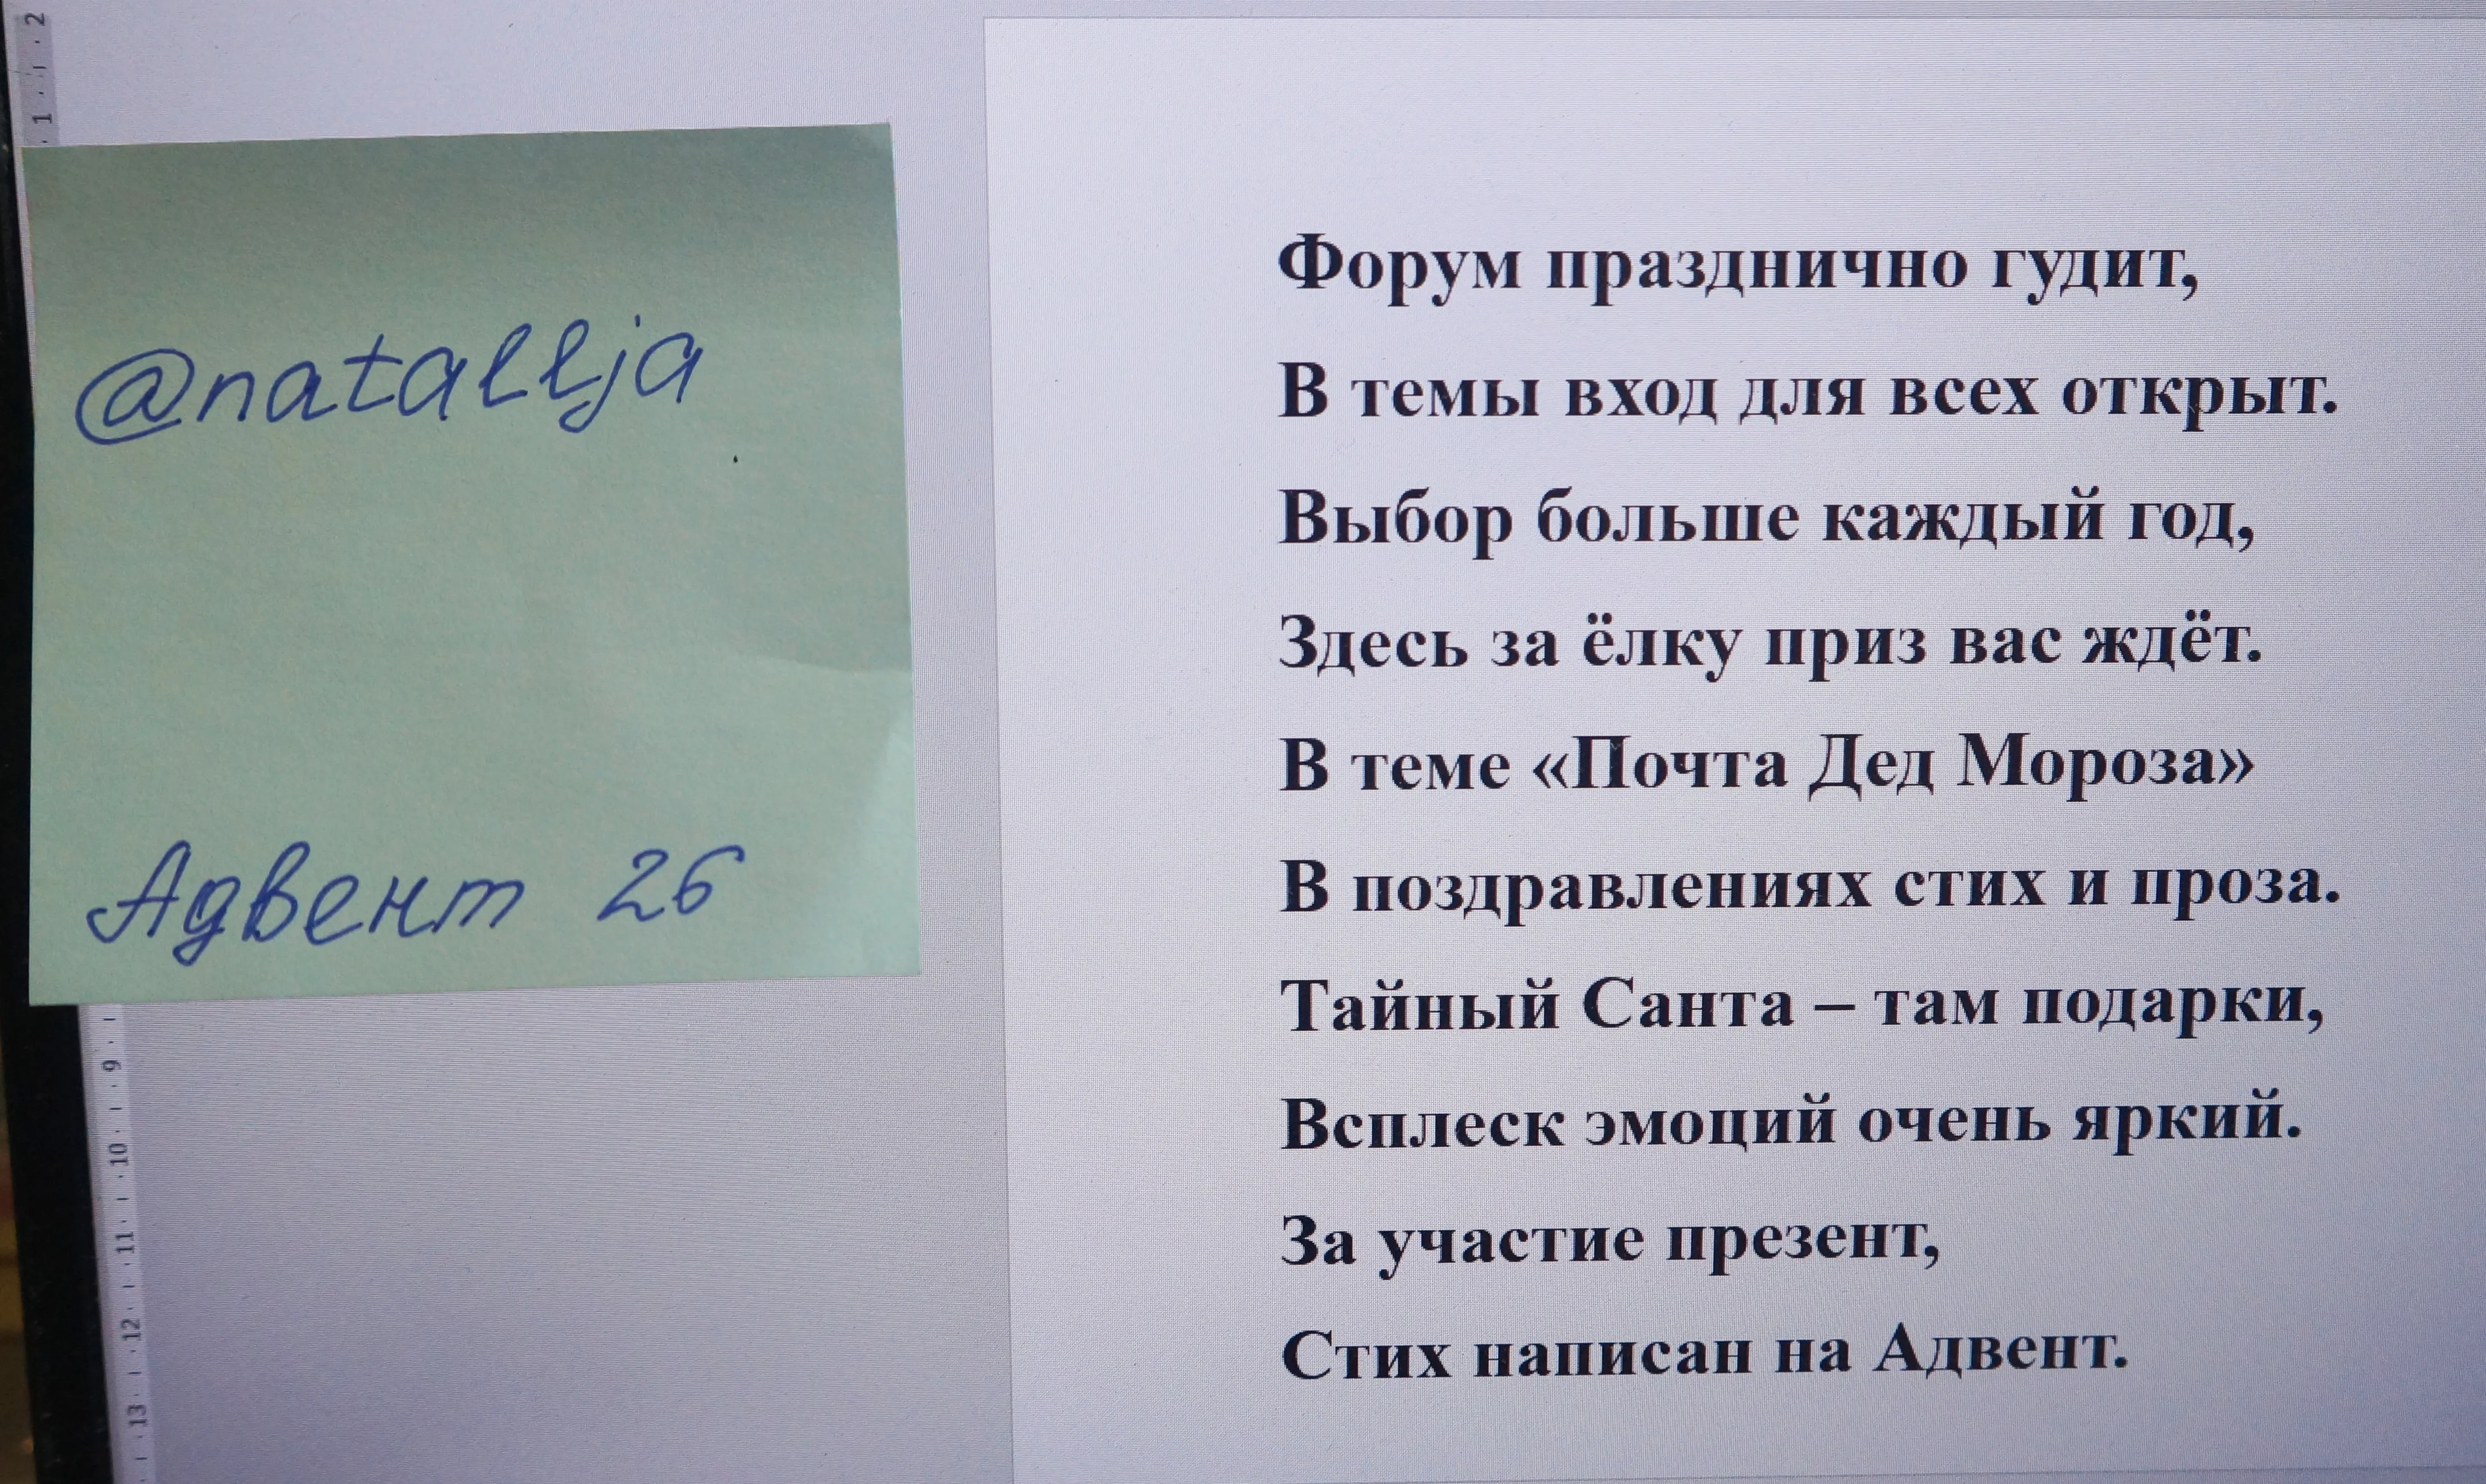 @natallja
Адвент 26
Форум празднично гудит,
В темы вход для всех открыт.
Выбор больше каждый год,
Здесь за ёлку приз вас ждёт.
В теме «Почта Дед Мороза»
В поздравлениях стих и проза.
Тайный Санта – там подарки,
Всплеск эмоций очень яркий.
За участие презент,
Стих написан на Адвент.
2
1
9
10
11
12
13